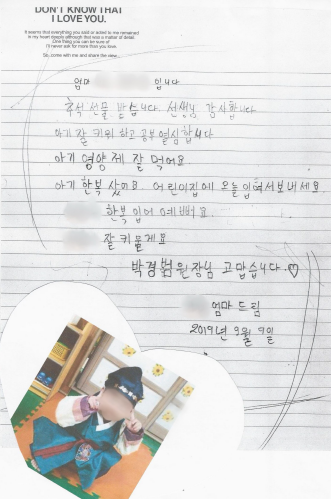 DON'T KNOW THAT
I LOVE YOU.
It seems that everything you said or asked to me remained
in my heart deeply although that was a matter of detail.
One thing you can be sure of
I'll never ask for more than you love.
So, come with me and share the new
엄마 입니다
추석 선물 받습니다. 선생님 감사합니다
아기 잘 키워 하고 공부 열심합니다
아기 영양제 잘 먹어요
아기 한복 샀어요. 어린이집에 오늘 입혀서 보내세요
한복 입어 예뻐요
잘 키울게요
박경범 원장님 고맙습니다.♡
엄마 드림
2019년 9월 9일